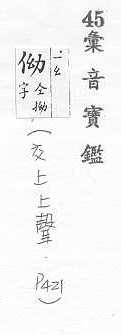 45彙音寶鑑
㑃仝拗字
(交上上聲. P421)